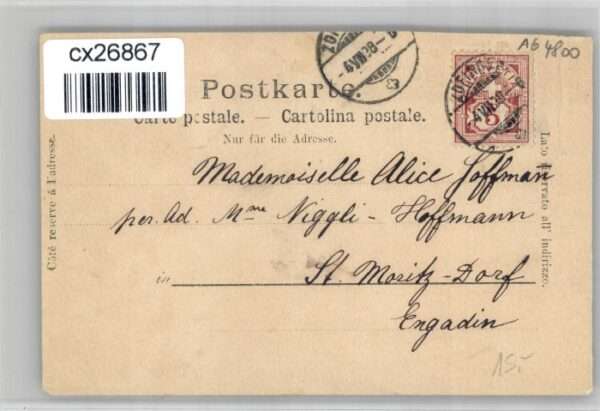 cx26867
AG 4800
ZOFINGEN
4.VII.98
Postkarte.
Carte postale. — Cartolina postale.
Nur für die Adresse.
Côté réservé à l'adresse.
Lato riservato all' indirizzo.
5
Mademoiselle Alice Hoffman
per. Ad. Mme Niggli - Hoffmann
in St. Moritz-Dorf
Engadin
15.-